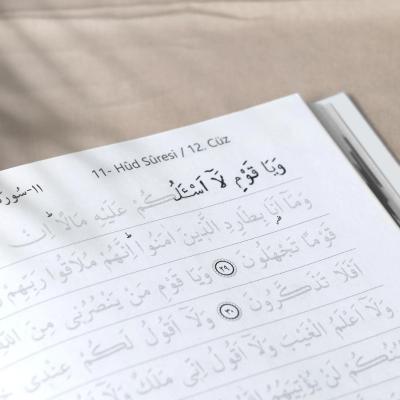 11- Hûd Sûresi / 12. Cüz
١١-سُورَة
وَيَا قَوْمِ لَٓا اَسْـَٔلُكُمْ عَلَيْهِ مَالاًۜ اِنْ
وَمَٓا اَنَا۬ بِطَارِدِ الَّذ۪ينَ اٰمَنُواۜ اِنَّهُمْ مُلَاقُوا رَبِّهِمْ
قَوْمًا تَجْهَلُونَ ﴿٢٩﴾ وَيَا قَوْمِ مَنْ يَنْصُرُن۪ي مِنَ اللّٰهِ
اَفَلَا تَذَكَّرُونَ ﴿٣٠﴾ وَلَٓا اَقُولُ لَكُمْ عِنْد۪ي
وَلَٓا اَعْلَمُ الْغَيْبَ وَلَٓا اَقُولُ اِنّ۪ي مَلَكٌ وَلَٓا
لَنْ يُؤْتِيَهُمُ